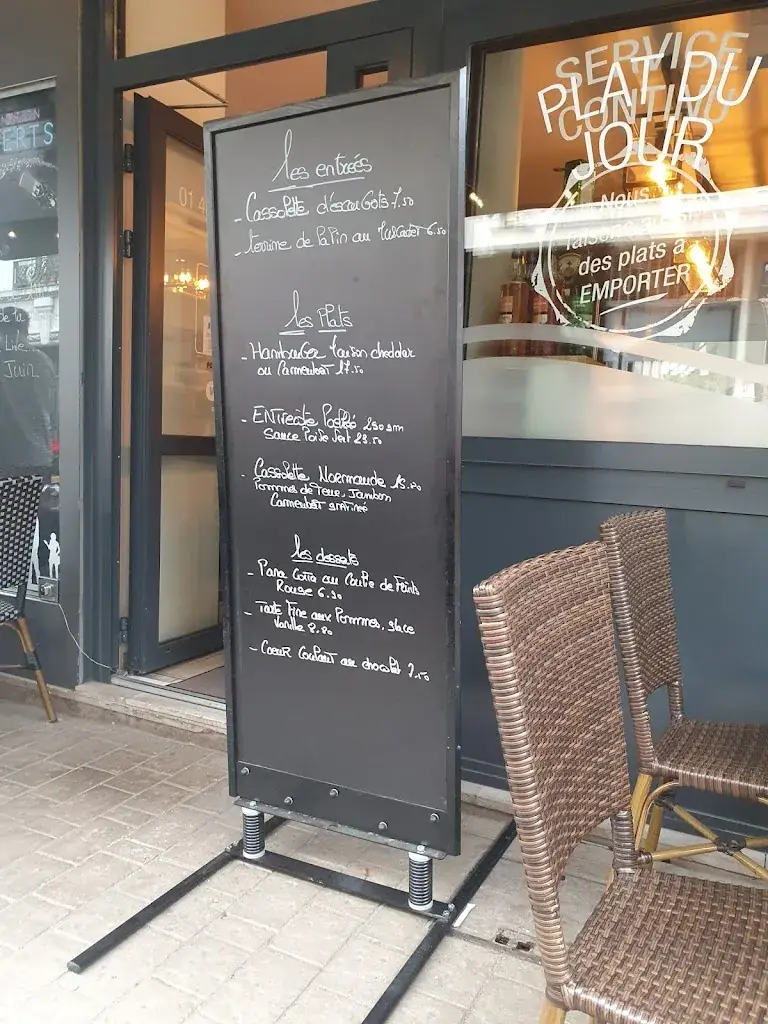 les entreés
- Cassolette d'escargots 7.50
- terrine de lapin au Muscadet 6.50
les Plats
- Hamburger Maison cheddar
ou Camembert 17.50
- ENTrecôte Poêlée 250 gm
Sauce Poivre Vert 23.50
- Cassolette Normande 15.90
Pommes de Terre, Jambon
Camembert
les desserts
- Pana Cotta au Coulis de Fruits
Rouge 6.90
- Tarte Fine aux Pommes, glace
Vanille 8.90
- Coeur Coulant au chocolat 7.50
SERVICE
CONTINU
PLAT DU
JOUR
NOUS
faisons
des plats à
EMPORTER
01 4
ERTS
de la
Juin